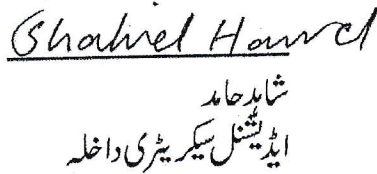 Shahid Hamid
شاہد حامد
ایڈیشنل سیکریٹری داخلہ